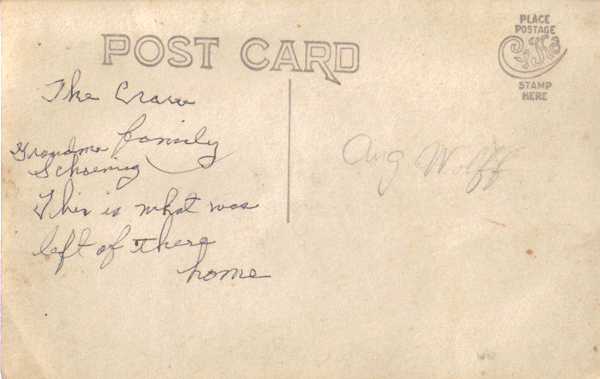 POST CARD
PLACE
POSTAGE
STAMP
HERE
The
family
Grandma
Schoening
This is what was
left of there
home
Aug Wolff